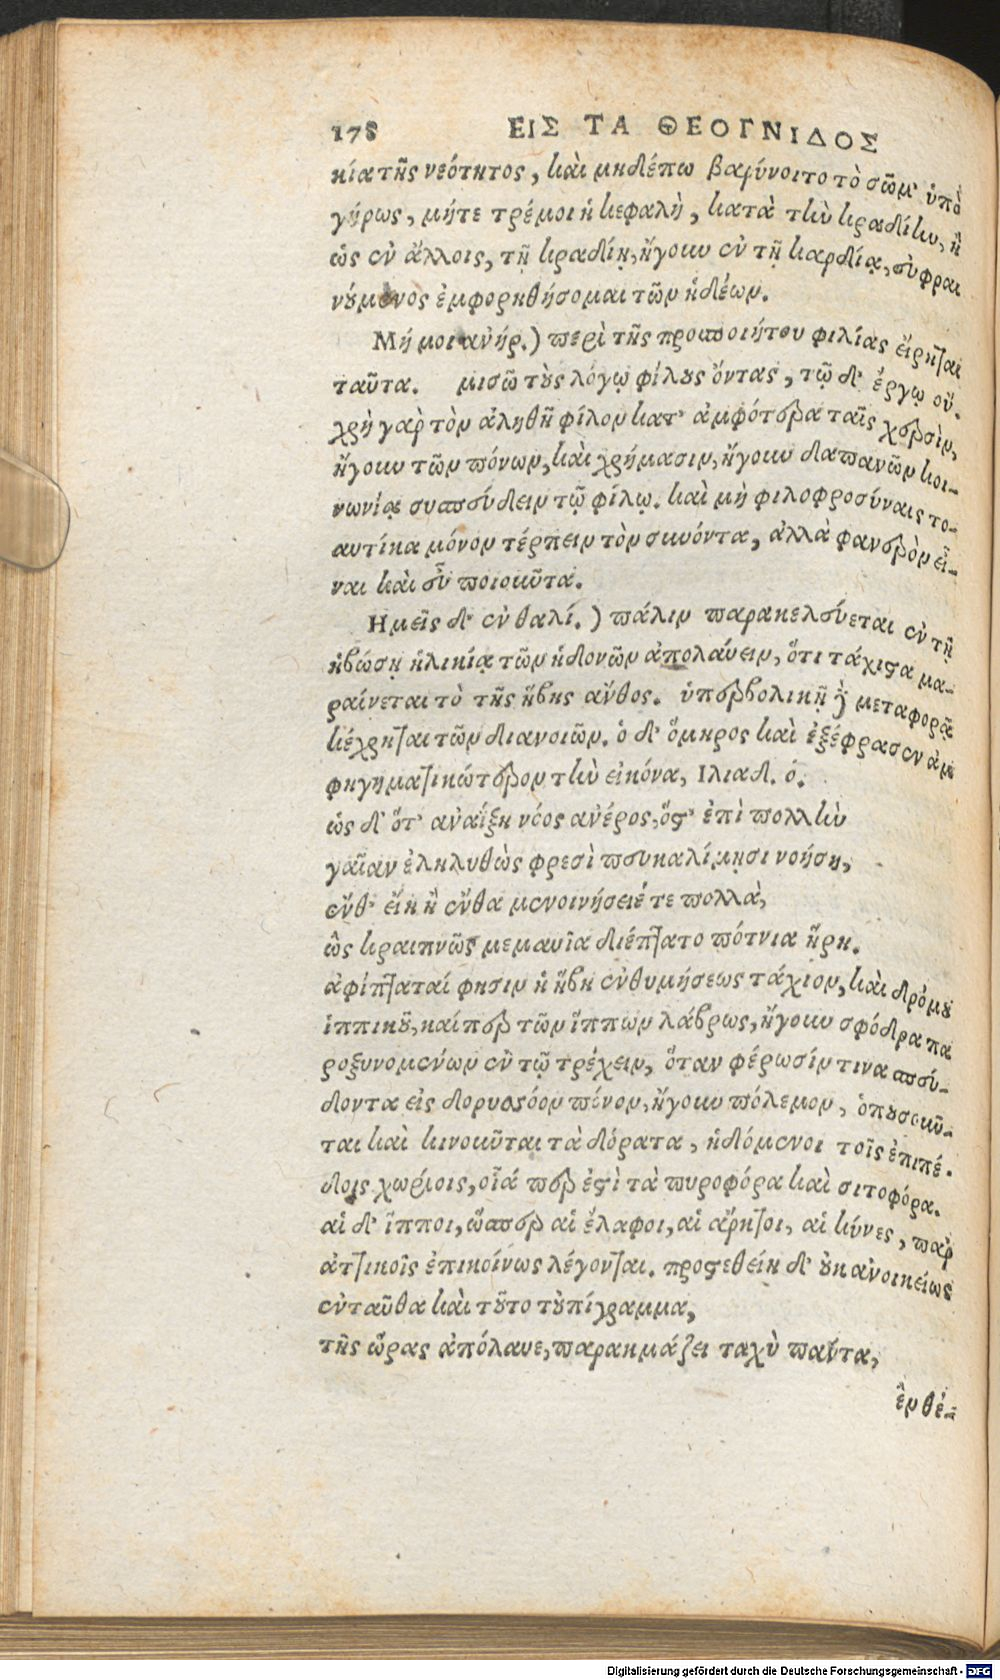 178 ΕΙΣ ΤΑ ΘΕΟΓΝΙΔΟΣ
κία τῆς νεότητος, καὶ μηδέπω βαρύνοιτο τὸ σῶμ' ὑπὸ
γήρως, μήτε τρέμοι ἡ κεφαλὴ, κατὰ τὴν κραδίην, ἢ
ὡς ἐν ἄλλοις, τῇ κραδίῃ, ἤγουν ἐν τῇ καρδίᾳ, εὐφραι
νόμενος ἐμφορηθήσομαι τῶν ἡδέων.
Μή μοι ἀνήρ.) περὶ τῆς προσποιήτου φιλίας εἴρηται
ταῦτα. μισῶ τοὺς λόγῳ φίλους ὄντας, τῷ δ' ἔργῳ οὔ.
χρὴ γὰρ τὸν ἀληθῆ φίλον κατ' ἀμφότερα ταῖς χερσὶν,
ἤγουν τῶν πόνων, καὶ χρήμασιν, ἤγουν δαπανῶν κοι-
νωνίᾳ συσπεύδειν τῷ φίλῳ. καὶ μὴ φιλοφροσύναις το-
αυτίκα μόνον τέρπειν τὸν συνόντα, ἀλλὰ φανερὸν εἶ-
ναι καὶ εὖ ποιοῦντα.
Ημεῖς δ' ἐν θαλί.) πάλιν παρακελεύεται ἐν τῇ
ἡβώσῃ ἡλικίᾳ τῶν ἡδονῶν ἀπολαύειν, ὅτι τάχιστα μα-
ραίνεται τὸ τῆς ἥβης ἄνθος. ὑπερβολικῇ δὲ μεταφορᾷ
κέχρηται τῶν διανοιῶν. ὁ δ' ὅμηρος καὶ ἐξέφρασεν ἀμ
φηγηματικώτερον τὴν εἰκόνα, Ιλιαδ. ό.
ὡς δ' ὅτ' ἀναΐξῃ νόος ἀνέρος, ὅστ' ἐπὶ πολλὴν
γαῖαν ἐληλυθὼς φρεσὶ πευκαλίμῃσι νοήσῃ,
ἔνθ' εἴη ἢ ἔνθα μενοινήσειέ τε πολλὰ,
ὣς κραιπνῶς μεμαυῖα διέπτατο πότνια ἥρη.
ἀφίπταταί φησιν ἡ ἥβη ἐνθυμήσεως τάχιον, καὶ δρόμου
ἱππικοῦ, καίπερ τῶν ἵππων λάβρως, ἤγουν σφόδρα πα
ροξυνομένων ἐν τῷ τρέχειν, ὅταν φέρωσίν τινα σπεύ-
δοντα εἰς δορυσσόον πόνον, ἤγουν πόλεμον, ὁποῦ σεῦν-
ται καὶ κινοῦνται τὰ δόρατα, ἡδόμενοι τοῖς ἐπιπέ-
δοις χωρίοις, οἷά περ ἐστὶ τὰ πυροφόρα καὶ σιτοφόρα.
αἱ δ' ἵπποι, ὥσπερ αἱ ἔλαφοι, αἱ ἄρκτοι, αἱ κύνες, παρ
ἀττικοῖς ἐπικοίνως λέγονται. προστεθείη δ' οὐκ ἀνοικείως
ἐνταῦθα καὶ τοῦτο τοὐπίγραμμα,
τῆς ὥρας ἀπόλαυε, παρακμάζει ταχὺ πάντα,
ἓν θέ-
Digitalisierung gefördert durch die Deutsche Forschungsgemeinschaft - DFG